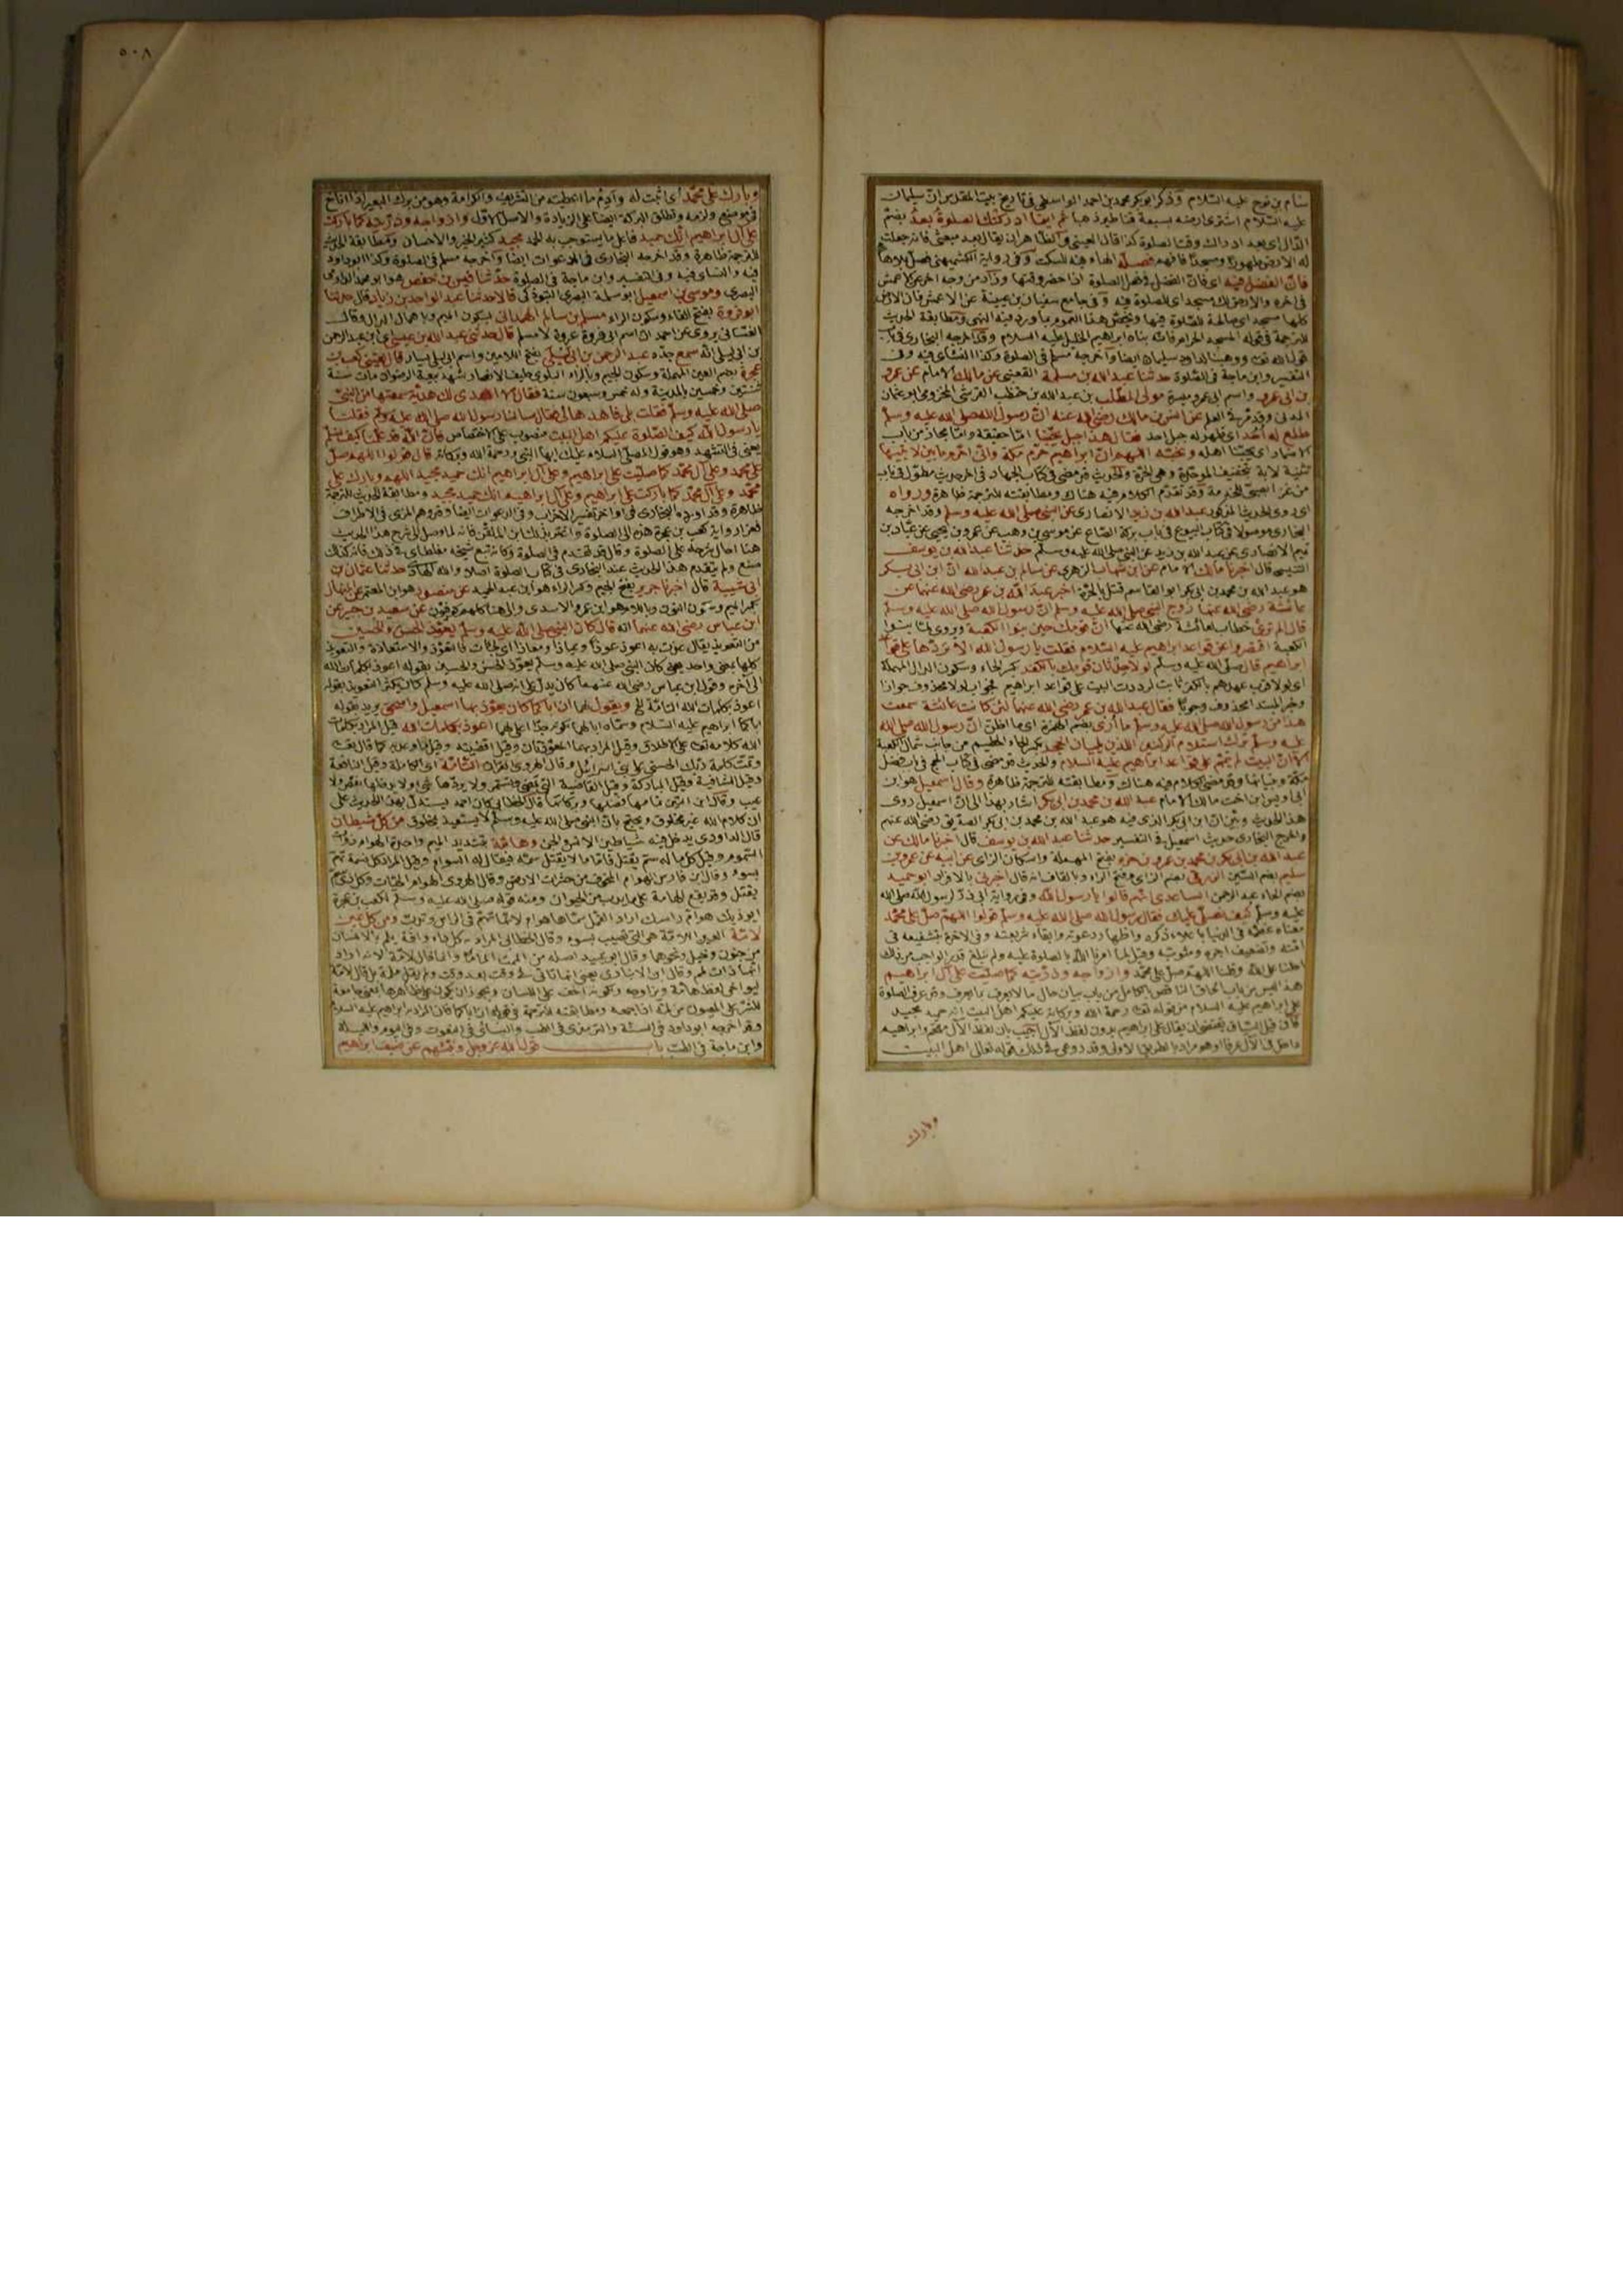 سام بن نوح عليه السلام وذكر ابو بكر محمد بن احمد الواسطى فى تاريخ بيت المقدس ان سليمان
عليه السلام اشترى ارضه بسبعة قناطير ذهبا ثم اينما ادركتك الصلوة بعد بضم
الدال اى بعد ادراك وقت الصلوة كذا قال العينى
له الارض طهورا ومسجدا فصله الهاء فيه للسكت وفى رواية الكشميهنى فصل بلا هاء
فان الفضل فيه اى فان الفضل فى فعل الصلوة اذا حضر وقتها وزاد من وجه اخر عن الاعمش
فى اخره والارض لك مسجد اى للصلوة فيه وفى جامع سفيان بن عيينة عن الاعمش فان الارض
كلها مسجد اى صالحة للصلوة فيها ويخص هذا العموم بما ورد فيه النهى ومطابقة الحديث
للترجمة فى قوله المسجد الحرام فانه بناه ابراهيم الخليل عليه السلام وقد اخرجه البخارى فى باب
قول الله تعالى ووهبنا لداود سليمان ايضا واخرجه مسلم فى الصلوة وكذا النسائى فيه وفى
التفسير وابن ماجة فى الصلوة حدثنا عبد الله بن مسلمة القعنبى عن مالك الامام عن عمرو
بن ابى عمرو واسم ابى عمرو ميسرة مولى المطلب بن عبد الله بن حنطب القرشى المخزومى ابو عثمان
المدنى وقد مر فى العلم عن انس بن مالك رضى الله عنه ان رسول الله صلى الله عليه وسلم
طلع له احد اى ظهر له جبل احد فقال هذا جبل يحبنا اما حقيقة واما مجاز من باب
الاضمار اى يحبنا اهله ونحبه اللهم ان ابراهيم حرم مكة وانى احرم ما بين لابتيها
تثنية لابة بتخفيف الموحدة وهى الحرة والحديث قد مضى فى كتاب الجهاد فى اخر حديث مطول فى باب
من غزا بصبى للخدمة وقد تقدم الكلام فيه هناك ومطابقته للترجمة ظاهرة ورواه
اى روى الحديث المذكور عبد الله بن زيد الانصارى عن النبى صلى الله عليه وسلم وقد اخرجه
البخارى موصولا فى كتاب البيوع فى باب بركة الصاع عن موسى بن وهب عن عمرو بن يحيى عن عباد بن
تميم الانصارى عن عبد الله بن زيد عن النبى صلى الله عليه وسلم حدثنا عبد الله بن يوسف
التنيسى قال اخبرنا مالك الامام عن ابن شهاب الزهرى عن سالم بن عبد الله ان ابن ابى بكر
هو عبد الله بن محمد بن ابى بكر ابو القاسم قتل بالحرة اخبر عبد الله بن عمر رضى الله عنهما عن
عائشة رضى الله عنها زوج النبى صلى الله عليه وسلم ان رسول الله صلى الله عليه وسلم
قال الم ترى خطاب لعائشة رضى الله عنها ان قومك حين بنوا الكعبة ويروى لما بنوا
الكعبة اقتصروا عن قواعد ابراهيم عليه السلام فقلت يا رسول الله الا تردها على قواعد
ابراهيم قال صلى الله عليه وسلم لولا حدثان قومك بالكفر بكسر الحاء وسكون الدال المهملة
اى لولا قرب عهدهم بالكفر ثابت لرددت البيت على قواعد ابراهيم فجواب لولا محذوف جوازا
وخبر المبتدا محذوف وجوبا فقال عبد الله بن عمر رضى الله عنهما لئن كانت عائشة سمعت
هذا من رسول الله صلى الله عليه وسلم ما أرى بضم الهمزة اى ما اظن ان رسول الله صلى الله
عليه وسلم ترك استلام الركنين اللذين يليان الحجر بكسر الحاء الحطيم من جانب شمال الكعبة
الا ان البيت لم يتم على قواعد ابراهيم عليه السلام والحديث قد مضى فى كتاب الحج فى باب فضل
مكة وبنيانها وقد مضى الكلام فيه هناك ومطابقته للترجمة ظاهرة وقال اسمعيل هو ابن
ابى اويس ابن اخت مالك الامام عبد الله بن محمد بن ابى بكر اشار بهذا الى ان اسمعيل روى
هذا الحديث وبين ان ابن ابى بكر الذى فيه هو عبد الله بن محمد بن ابى بكر الصديق رضى الله عنهم
واخرج البخارى حديث اسمعيل فى التفسير حدثنا عبد الله بن يوسف قال اخبرنا مالك عن
عبد الله بن ابى بكر بن محمد بن عمرو بن حزم بفتح المهملة واسكان الزاى عن ابيه عن عمرو بن
سليم بضم السين الزرقى بضم الزاى وفتح الراء وبالقاف انه قال اخبرنى بالافراد ابو حميد
بضم الحاء عبد الرحمن الساعدى انهم قالوا يا رسول الله
عليه وسلم كيف نصلى عليك فقال رسول الله صلى الله عليه وسلم قولوا اللهم صل على محمد
معناه عظمه فى الدنيا باعلاء ذكره واظهار دعوته وابقاء شريعته وفى الاخرة بتشفيعه فى
امته وتضعيف اجره ومثوبته وقيل لما امرنا الله بالصلوة عليه ولم نبلغ قدر الواجب من ذلك
احلنا على الله وقلنا اللهم صل على محمد وازواجه وذريته كما صليت على آل ابراهيم
هذا ليس من باب الحاق الناقص بالكامل بل من باب بيان حال ما لا يعرف بما يعرف وقد عرف الصلوة
على ابراهيم عليه السلام من قوله تعالى رحمة الله وبركاته عليكم اهل البيت انه حميد مجيد
فان قيل السياق يقتضى ان يقال على ابراهيم بدون لفظ الآل اجيب بان لفظ الآل مقحم وابراهيم
داخل فى الآل عرفا او هو مراد بالطريق الاولى وقد روعى فى ذلك قوله تعالى اهل البيت
وبارك
٥٠٨
وبارك على محمد اى اثبت له وادم ما اعطيته من التشريف والكرامة وهو من برك البعير اذا اناخ
فى موضع ولزمه وتطلق البركة ايضا على الزيادة والاصل الاول وازواجه وذريته كما باركت
على آل ابراهيم انك حميد فاعل ما يستوجب به الحمد مجيد كثير الخير والاحسان ومطابقة الحديث
للترجمة ظاهرة وقد اخرجه البخارى فى الدعوات ايضا واخرجه مسلم فى الصلوة وكذا ابو داود
فيه والنسائى فيه وفى التفسير وابن ماجة فى الصلوة حدثنا قيس بن حفص هو ابو محمد الدارمى
البصرى وموسى بن اسمعيل ابو سلمة البصرى التبوذكى قالا حدثنا عبد الواحد بن زياد قال حدثنا
ابو فروة بفتح الفاء وسكون الراء مسلم بن سالم الهمدانى بسكون الميم وباهمال الدال وقال
الغسانى يروى عن احمد ان اسم ابى فروة عروة لا مسلم قال حدثنى عبد الله بن عيسى اى ابن عبد الرحمن
بن ابى ليلى انه سمع جده عبد الرحمن بن ابى ليلى بفتح اللامين واسم ابى ليلى يسار قال لقينى كعب بن
عجرة بضم العين المهملة وسكون الجيم وبالراء البلوى حليف الانصار شهد بيعة الرضوان مات سنة
ثنتين وخمسين بالمدينة وله خمس وسبعون سنة فقال الا اهدى لك هدية سمعتها من النبى
صلى الله عليه وسلم فقلت بلى فاهدها لى فقال سالنا رسول الله صلى الله عليه وسلم فقلنا
يا رسول الله كيف الصلوة عليكم اهل البيت منصوب على الاختصاص فان الله قد علمنا كيف نسلم
يعنى فى التشهد وهو قول المصلى السلام عليك ايها النبى ورحمة الله وبركاته قال قولوا اللهم صل
على محمد وعلى آل محمد كما صليت على ابراهيم وعلى آل ابراهيم انك حميد مجيد اللهم وبارك على
محمد وعلى آل محمد كما باركت على ابراهيم وعلى آل ابراهيم انك حميد مجيد ومطابقة الحديث للترجمة
ظاهرة وقد اخرجه البخارى فى اواخر تفسير الاحزاب وفى الدعوات ايضا وقد وهم المزى فى الاطراف
فعزا رواية كعب بن عجرة هذه الى الصلوة واغتر بذلك ابن الملقن فانه لما وصل الى شرح هذا الحديث
هنا احال بشرحه على الصلوة وقال قد تقدم فى الصلوة وكانه تبع شيخه مغلطاى فى ذلك فانه كذلك
صنع ولم يتقدم هذا الحديث عند البخارى فى كتاب الصلوة اصلا والله الهادى حدثنا عثمان بن
ابى شيبة قال اخبرنا جرير بفتح الجيم وكسر الراء هو ابن عبد الحميد عن منصور هو ابن المعتمر عن المنهال
بكسر الميم وسكون النون وباللام هو ابن عمرو الاسدى والى هنا كلهم كوفيون عن سعيد بن جبير عن
ابن عباس رضى الله عنهما انه قال كان النبى صلى الله عليه وسلم يعوذ الحسن والحسين
من التعويذ يقال عذت به اعوذ عوذا وعياذا ومعاذا اى لجأت فالتعوذ والاستعاذة والتعويذ
كلها بمعنى واحد يعنى كان النبى صلى الله عليه وسلم يعوذ الحسن والحسين بقوله اعوذ بكلمات الله
الى اخره وقول ابن عباس رضى الله عنهما كان يدل على انه صلى الله عليه وسلم كان يكثر التعويذ بقوله
اعوذ بكلمات الله التامة الخ ويقول لهما ان اباكما كان يعوذ بها اسمعيل واسحق يريد بقوله
اباكما ابراهيم عليه السلام وسماه ابا لهما لكونه جدا اعلى لهما اعوذ بكلمات الله قيل المراد بكلمات
الله كلامه تعالى على الاطلاق وقيل المراد بها المعوذتان وقيل اقضيته وقيل ما وعد به كما قال تعالى
وتمت كلمة ربك الحسنى على بنى اسرائيل وقال الهروى القرآن التامة اى الكاملة وقيل النافعة
وقيل الشافية وقيل المباركة وقيل القاضية التى تمضى وتستمر ولا يردها شئ ولا يدخلها نقص ولا
عيب وقال ابن التين تمامها فضلها وبركاتها قال الخطابى كان احمد يستدل بهذا الحديث على
ان كلام الله غير مخلوق ويحتج بان النبى صلى الله عليه وسلم لا يستعيذ بمخلوق من كل شيطان
قال الداودى يدخل فيه شياطين الانس والجن وهامة بتشديد الميم واحدة الهوام ذوات
السموم وقيل كل ما له سم يقتل فاما ما لا يقتل سمه فيقال له السوام وقيل المراد كل نسمة تهم
بسوء وقال ابن فارس الهوام المخوف من حشرات الارض وقال الهروى الهوام الحيات وكل ذى سم
يقتل وقد يقع الهامة على ما يدب من الحيوان ومنه قوله صلى الله عليه وسلم لكعب بن عجرة
ايؤذيك هوام راسك اراد القمل سماها هوام لانها تهم فى الراس وتدب ومن كل عين
لامة العين اللامة هى التى تصيب بسوء وقال الخطابى المراد به كل داء وافة يلم بالانسان
من جنون وخبل ونحوهما وقال ابو عبيد اصله من الممت الماما وانما قال لامة لانه اراد
انها ذات لمم وقال ابن الانبارى يعنى انها تاتى فى وقت بعد وقت ولم يقل ملمة بل قال لامة
ليواخى لفظ هامة ويزاوجه ولكونه اخف على اللسان
ومطابقته للترجمة فى قوله ان اباكما فان المراد به ابراهيم عليه السلام
وقد اخرجه ابو داود فى السنة والترمذى فى الطب والنسائى فى النعوت وفى اليوم والليلة
وابن ماجة فى الطب باب قول الله عز وجل ونبئهم عن ضيف ابراهيم